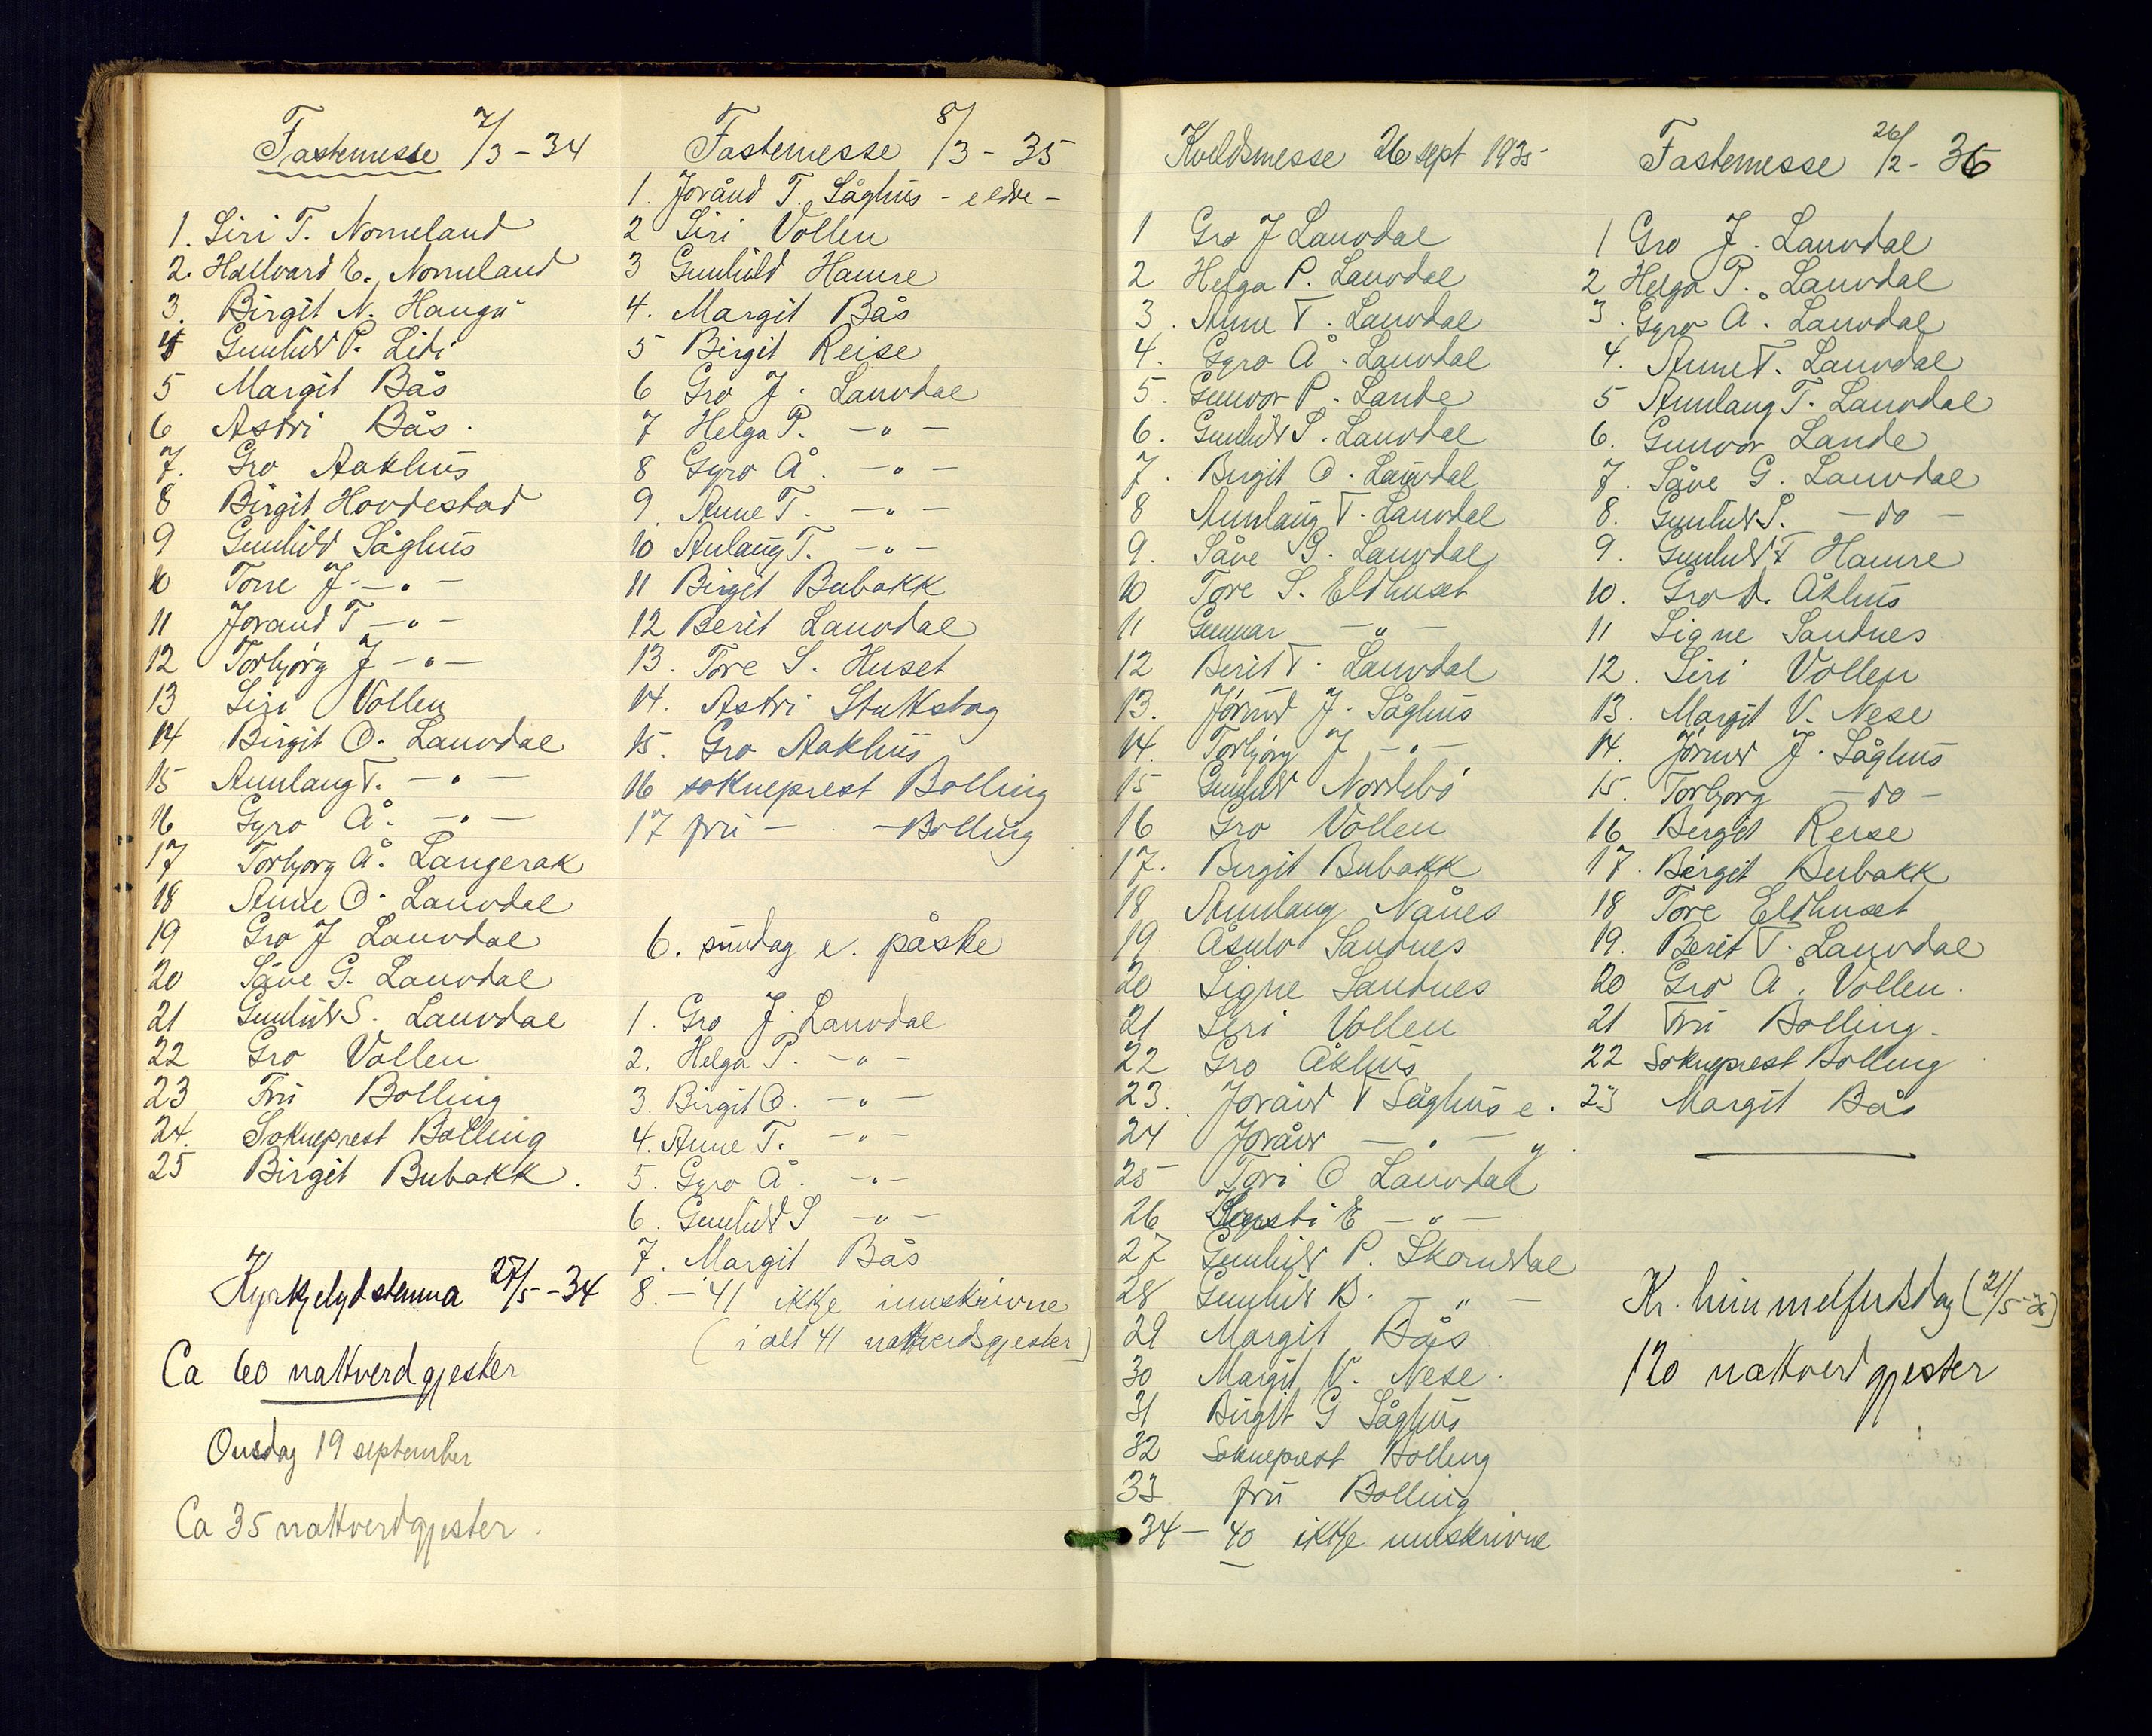 Fastemesse 7/3 - 34
1. Siri T. Nomeland
2. Hallvard E. Nomeland
3. Birgit N. Haugà
4 Gunhild P. Lidi
5 Margit Bås
6 Astri Bås.
7. Gro Aakhus
8 Birgit Hovdestad
9 Gunhild Såghus
10 Tone J. - " -
11 Jorand T - " -
12 Torbjørg J - " -
13 Siri Vollen
14 Birgit O. Lauvdal
15 Aunlaug T. - " -
16 Gyro Å. - " -
17 Torbjorg Å. Langerak
18 Anne O. Lauvdal
19 Gro J Lauvdal
20 Såve G. Lauvdal
21 Gunhild S. Lauvdal
22 Gro Vollen
23 Fru Bolling
24. Sokneprest Bolling
25 Birgit Bubakk.
Kyrkjelydstemna 27/5 - 34
Ca 60 nattverdgjester
Onsdag 19 september
Ca 35 nattverdgjester.
Fastemesse 8/3 - 35
1. Jorånd T. Såghus - eldre -
2 Siri Vollen
3 Gunhild Hamre
4. Margit Bås
5 Birgit Reise
6 Gro J. Lauvdal
7 Helga P. - " -
8 Gyro Å. - " -
9. Anne T. - " -
10 Aulaug T. - " -
11 Birgit Bubakk
12 Berit Lauvdal
13. Tore S. Huset
14. Astri Stuttshag
15. Gro Aakhus
16 sokneprest Bolling
17 fru - - Bolling
6. sundag e. påske
1. Gro J. Lauvdal
2. Helga P. - " -
3. Birgit O. - " -
4. Anne T. - " -
5. Gyro Å. - " -
6. Gunhild S - " -
7. Margit Bås
8. - 41 ikkje innskrivne
(i alt 41 nattverdsgjester)
Kveldsmesse 26 sept 1935
1 Gro J Lauvdal
2 Helga P. Lauvdal
3. Anne T. Lauvdal
4. Gyro Å. Lauvdal
5. Gunvor P. Lande
6. Gunhild S. Lauvdal
7. Birgit O. Lauvdal
8 Aunlaug T. Lauvdal
9. Såve G. Lauvdal
10 Tore S. Eldhuset
11 Gunnar - " -
12 Berit T. Lauvdal
13. Jórund J. Såghus
14. Torbjørg J - " -
15 Gunhild Nordebö
16 Gro Vollen
17. Birgit Bubakk
18 Aunlaug Nånes
19 Åsulv Sandnes
20 Signe Sandnes
21 Siri Vollen
22 Gro Åkhus
23. Jorånd T Såghus e.
24 Jorånd - " - y.
25 Tori O Lauvdal
26 E - " -
27 Gunhild P. Skomdal
28 Gunhild B. - " -
29 Margit Bås
30 Margit V. Nese.
31 Birgit G Såghus
32 Sokneprest Bolling
33 fru Bolling
34 - 40 ikkje innskrivne
Fastemesse 26/2 - 36
1 Gro J. Lauvdal
2 Helga P. Lauvdal
3. Gyro Å. Lauvdal
4. Anne T. Lauvdal
5 Aunlaug T. Lauvdal
6. Gunvor Lande
7. Såve G. Lauvdal
8. Gunhild S. - do -
9. Gunhild T Hamre
10. Gro D. Åkhus
11 Signe Sandnes
12. Siri Vollen
13. Margit V. Nese
14. Jórund J. Såghus
15. Torbjorg - do -
16 Birgit Reise
17. Birgit Bubakk
18 Tore Eldhuset
19. Berit T. Lauvdal
20 Gro Å. Vollen.
21 Fru Bolling.
22 Sokneprest Bolling
23 Margit Bås
Kr. himmelferdsdag (21/5 - 36)
120 nattverdgjester